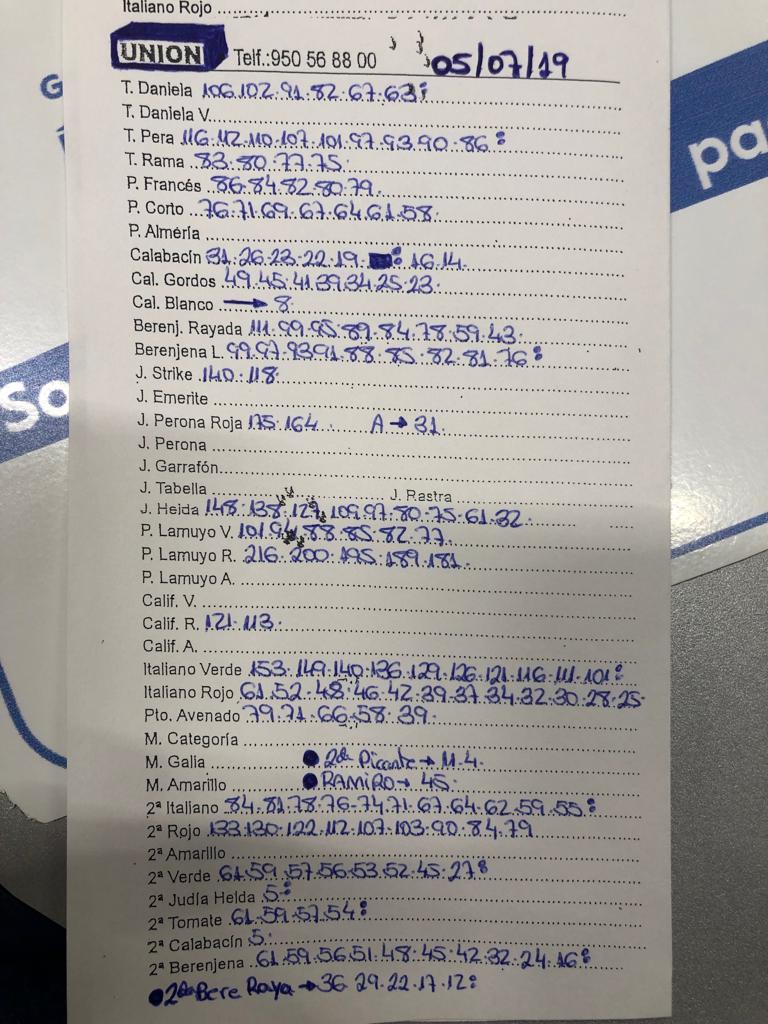 Italiano Rojo
UNION Telf.:950 56 88 00 05/07/19
T. Daniela 106.102.91.82.67.63:
T. Daniela V.
T. Pera 116.112.110.107.101.97.93.90.86:
T. Rama 83.80.77.75.
P. Francés 86.84.82.80.79.
P. Corto 76.71.69.67.64.61.58.
P. Almería
Calabacín 31.26.23.22.19. : 16.14.
Cal. Gordos 49.45.41.39.34.25.23.
Cal. Blanco → 8.
Berenj. Rayada 111.99.95.89.84.78.59.43.
Berenjena L. 99.97.93.91.88.85.82.81.76:
J. Strike 140.118.
J. Emerite
J. Perona Roja 175.164 A → 31.
J. Perona
J. Garrafón
J. Tabella J. Rastra
J. Helda 148.138.127.109.97.80.75.61.32.
P. Lamuyo V. 101.94.88.85.82.77.
P. Lamuyo R. 216.200.195.189.181.
P. Lamuyo A.
Calif. V.
Calif. R. 121.113.
Calif. A.
Italiano Verde 153.149.140.136.129.126.121.116.111.101:
Italiano Rojo 61.52.48.46.42.39.37.34.32.30.28.25.
Pto. Avenado 79.71.66.58.39.
M. Categoría
M. Galia ● 2da Picante → 11.4.
M. Amarillo ● RAMIRO → 45.
2ª Italiano 84.81.78.76.74.71.67.64.62.59.55:
2ª Rojo 133.130.122.112.107.103.90.84.79
2ª Amarillo
2ª Verde 61.59.57.56.53.52.45.27:
2ª Judía Helda 5:
2ª Tomate 61.59.57.54:
2ª Calabacín 5.
2ª Berenjena 61.59.56.51.48.45.42.32.24.16:
● 2da Bere Raya → 36 29.22.17.12:
G
pa
So